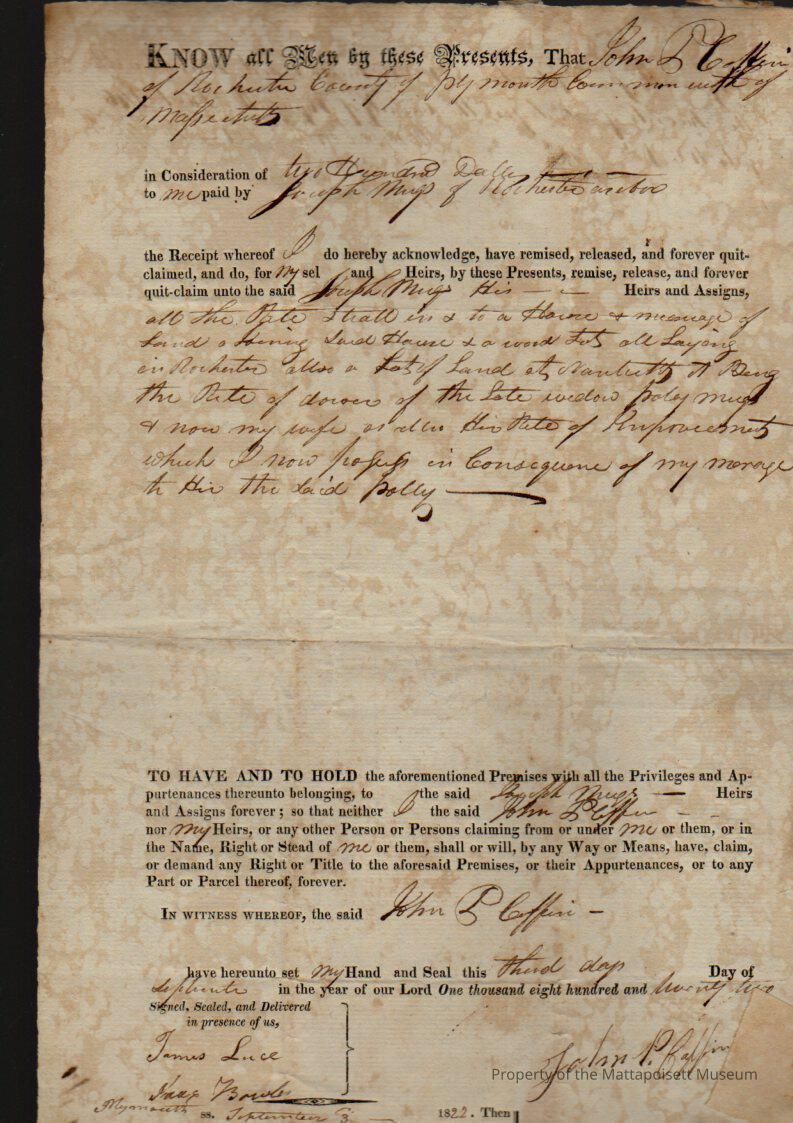 KNOW all Men by these Presents, That John P Coffin
of Rochester County of plymouth Common wealth of
Massectutts
in Consideration of two Hundred
to me paid by Joseph Meigs of Rochester
the Receipt whereof I do hereby acknowledge, have remised, released, and forever quit-
claimed, and do, for my sel and Heirs, by these Presents, remise, release, and forever
quit-claim unto the said Joseph Meigs His Heirs and Assigns,
all the Rite & in & to a House & of
Land said House & a wood Lot all Laying
in Rochester allso a Lot of Land at it Being
the Rite of dower of the Late widow polly meigs
& now my wife as allso Hir Rite of
which I now posses in Consequene of my merage
to Hir the said polly
TO HAVE AND TO HOLD the aforementioned Premises with all the Privileges and Ap-
purtenances thereunto belonging, to the said Joseph Meigs — Heirs
and Assigns forever; so that neither I the said John P Coffin
nor my Heirs, or any other Person or Persons claiming from or under me or them, or in
the Name, Right or Stead of me or them, shall or will, by any Way or Means, have, claim,
or demand any Right or Title to the aforesaid Premises, or their Appurtenances, or to any
Part or Parcel thereof, forever.
IN WITNESS WHEREOF, the said John P Coffin —
have hereunto set my Hand and Seal this third day Day of
in the year of our Lord One thousand eight hundred and twenty two
Signed, Sealed, and Delivered
in presence of us,
James Luce
John P. Coffin
Property of the Mattapoisett Museum
Plymouth ss. September 3 1822. Then